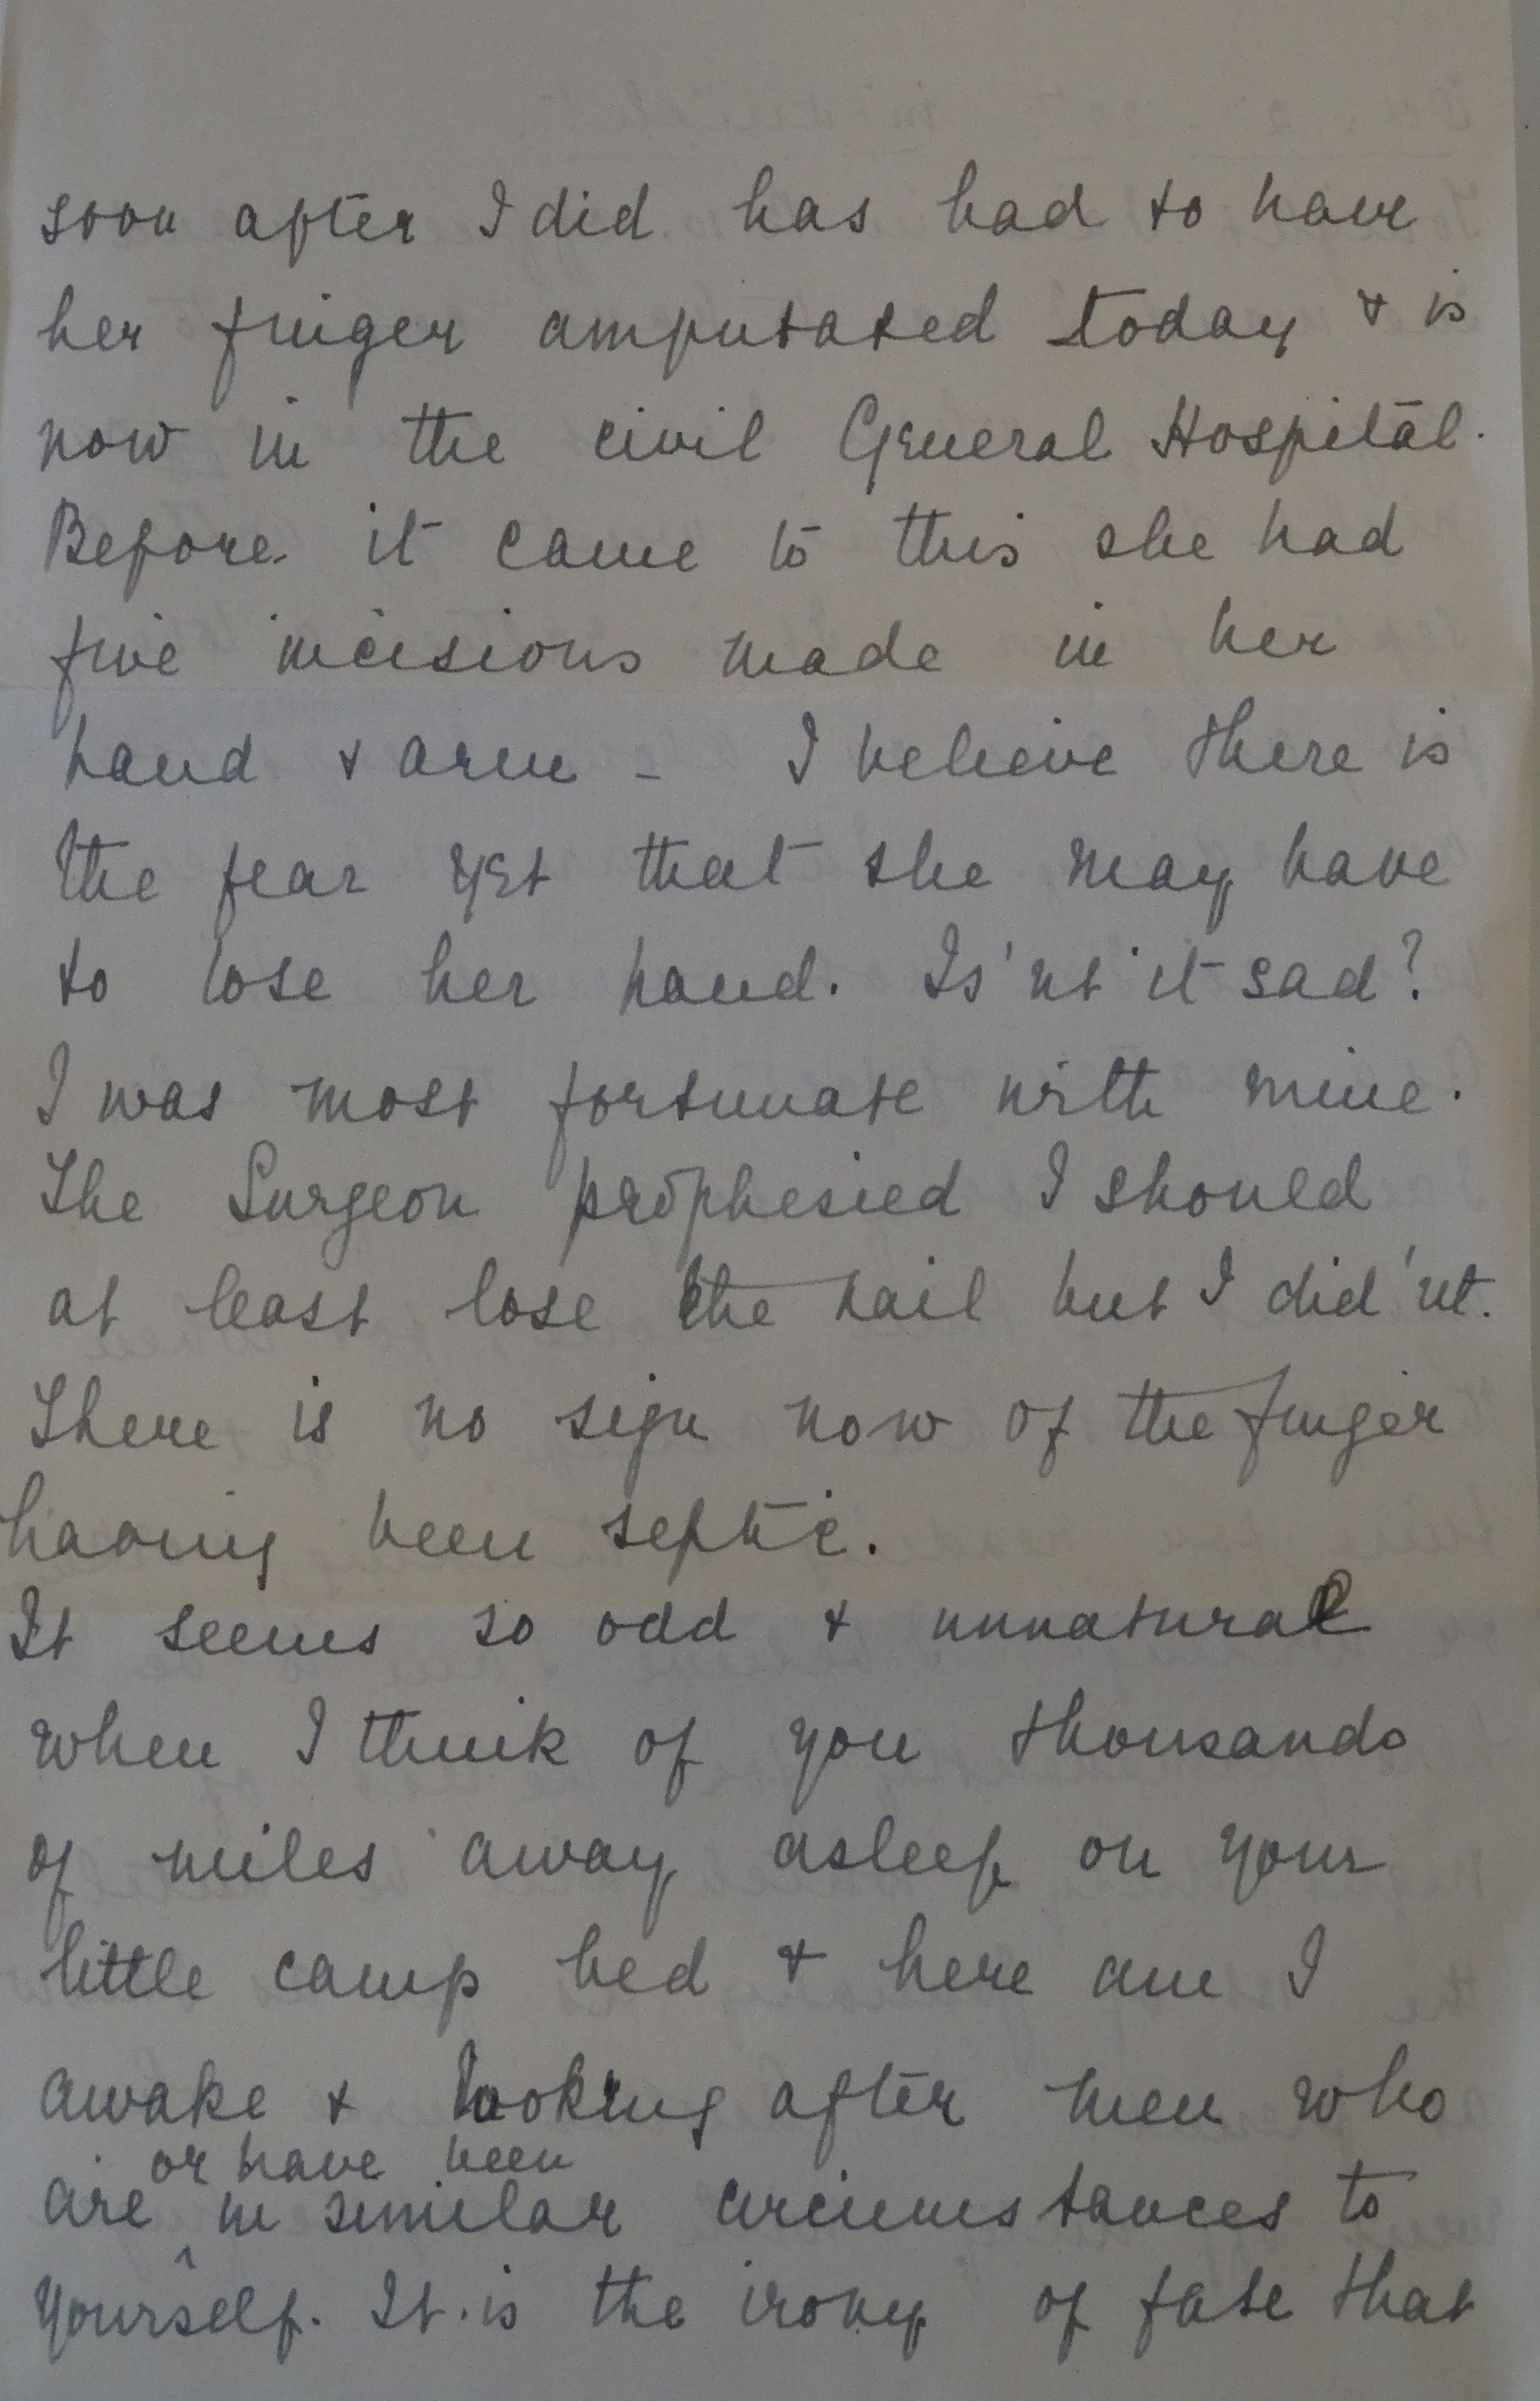 soon after I did has had to have
her finger amputated today & is
now in the civil General Hospital.
Before it came to this she had
five incisions made in her
hand & arm - I believe there is
the fear yet that she may have
to lose her hand. Is'nt it sad?
I was most fortunate with mine.
The Surgeon prophesied I should
at least lose the nail but I did'nt.
There is no sign now of the finger
having been septic.
It seems so odd & unnatural
when I think of you thousands
of miles away asleep on your
little camp bed & here am I
awake & looking after men who
or have been
are ^ in similar circumstances to
yourself. It is the irony of fate that